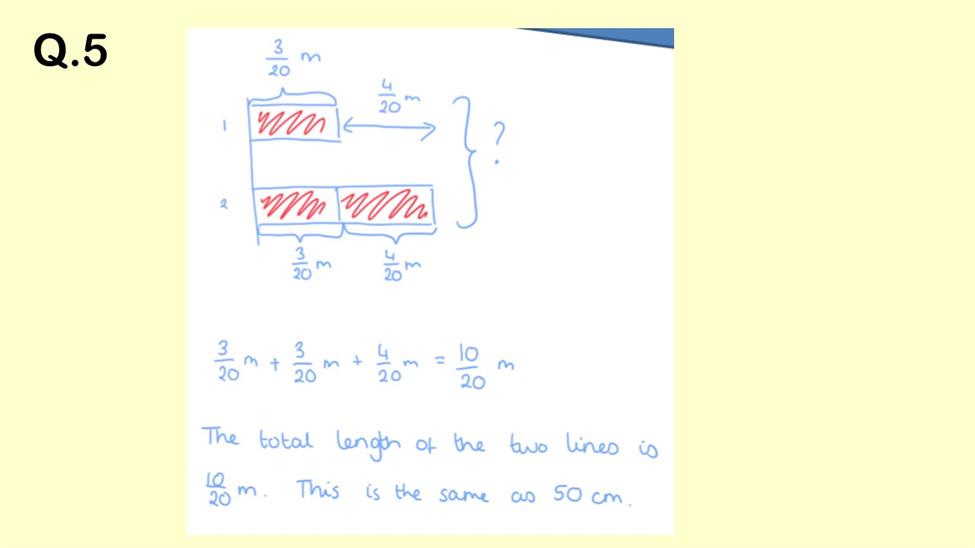 Q.5
3/20 m
4/20 m
1
?
2
3/20 m
4/20 m
3/20 m + 3/20 m + 4/20 m = 10/20 m
The total length of the two lines is
10/20 m. This is the same as 50 cm.